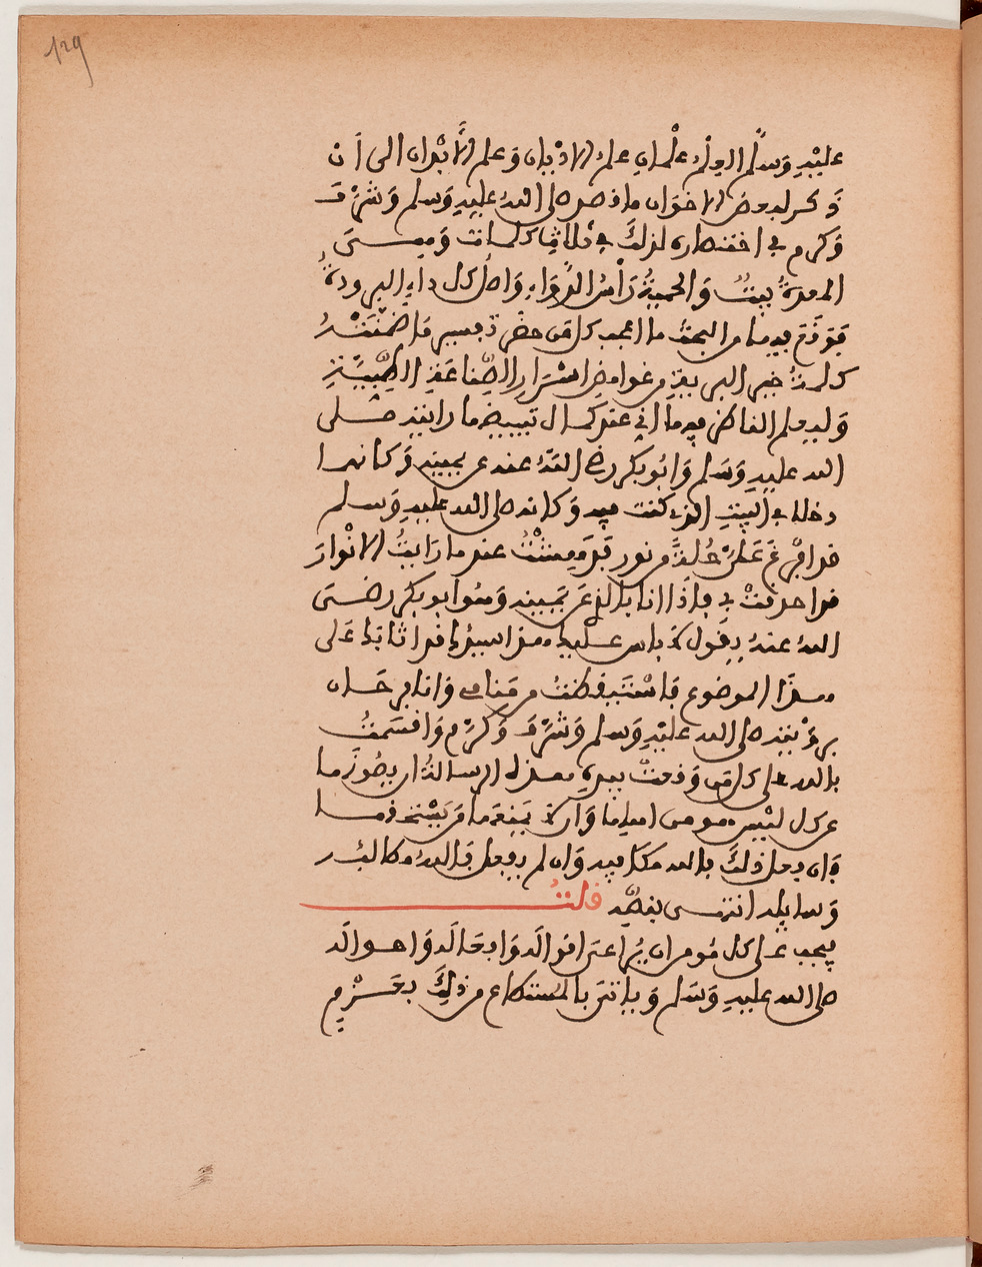 129
عليه وسلم العلم علمان علم الاديان وعلم الأبدان الى ان
ذكر لبعض الاخوان ما خص صلى الله عليه وسلم وشرف
وكرم في اختصاره لذلك في ثلاث كلمات وهي
المعدة بيت والحمية رأس الدواء واصل كل داء البرودة
فوقع فيه ما من البحث ما اعجب كل من حضر تفسير ما ضمنته
كلمة خير البرية من غوامض اسرار الصناعة الطبية
وليعلم الناظر فيه ما اني عند كمال تبييضه رايته صلى
الله عليه وسلم وابو بكر رضي الله عنه عن يمينه وكانهما
دخلا في البيت الذي كنت فيه وكانه صلى الله عليه وسلم
قد افرغ على حلة من نور فدهشت عند ما رايت الانوار
قد احدقت بي فاذا انا بالذي عن يمينه وهو ابو بكر رضي
الله عنه يقول لا باس عليك هذا سيدك قد اثابك على
هذا الموضوع فاستيقظت من منامي وانا فرحان
برؤيته صلى الله عليه وسلم وشرف وكرم واقسمت
بالله على كل من وقعت بيده هذه الرسالة ان يصونها
عن كل ليس هو من اهلها وان لا يمنعها من يستحقها
فان فعل ذلك بالله مكافيه وان لم يفعل فالله مطالبه
وسايله انتهى بنصه قلت
يجب على كل مومن ان يراعي اقواله وافعاله واحواله
صلى الله عليه وسلم وياتي بالمستطاع من ذلك بحزم